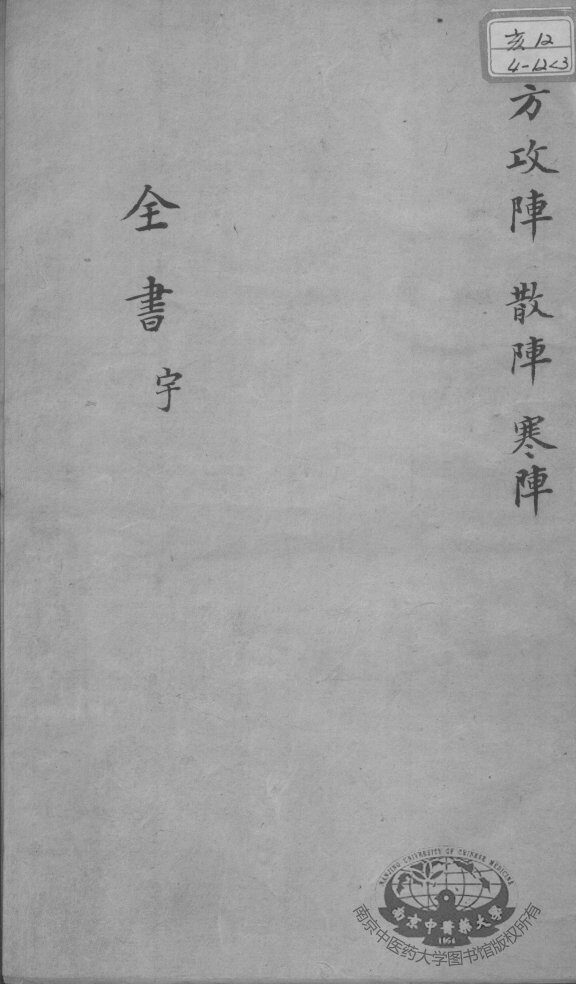 亥12
4-12<3
方攻陣 散陣 寒陣
全書宇
NANJING UNIVERSITY OF CHINESE MEDICINE
南京中醫藥大學
1954
南京中医药大学图书馆版权所有